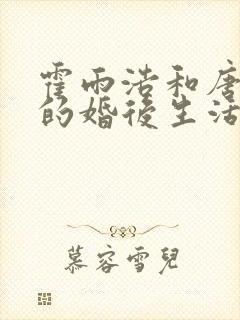 霍雨浩和唐
的婚後生活
慕容雪兒